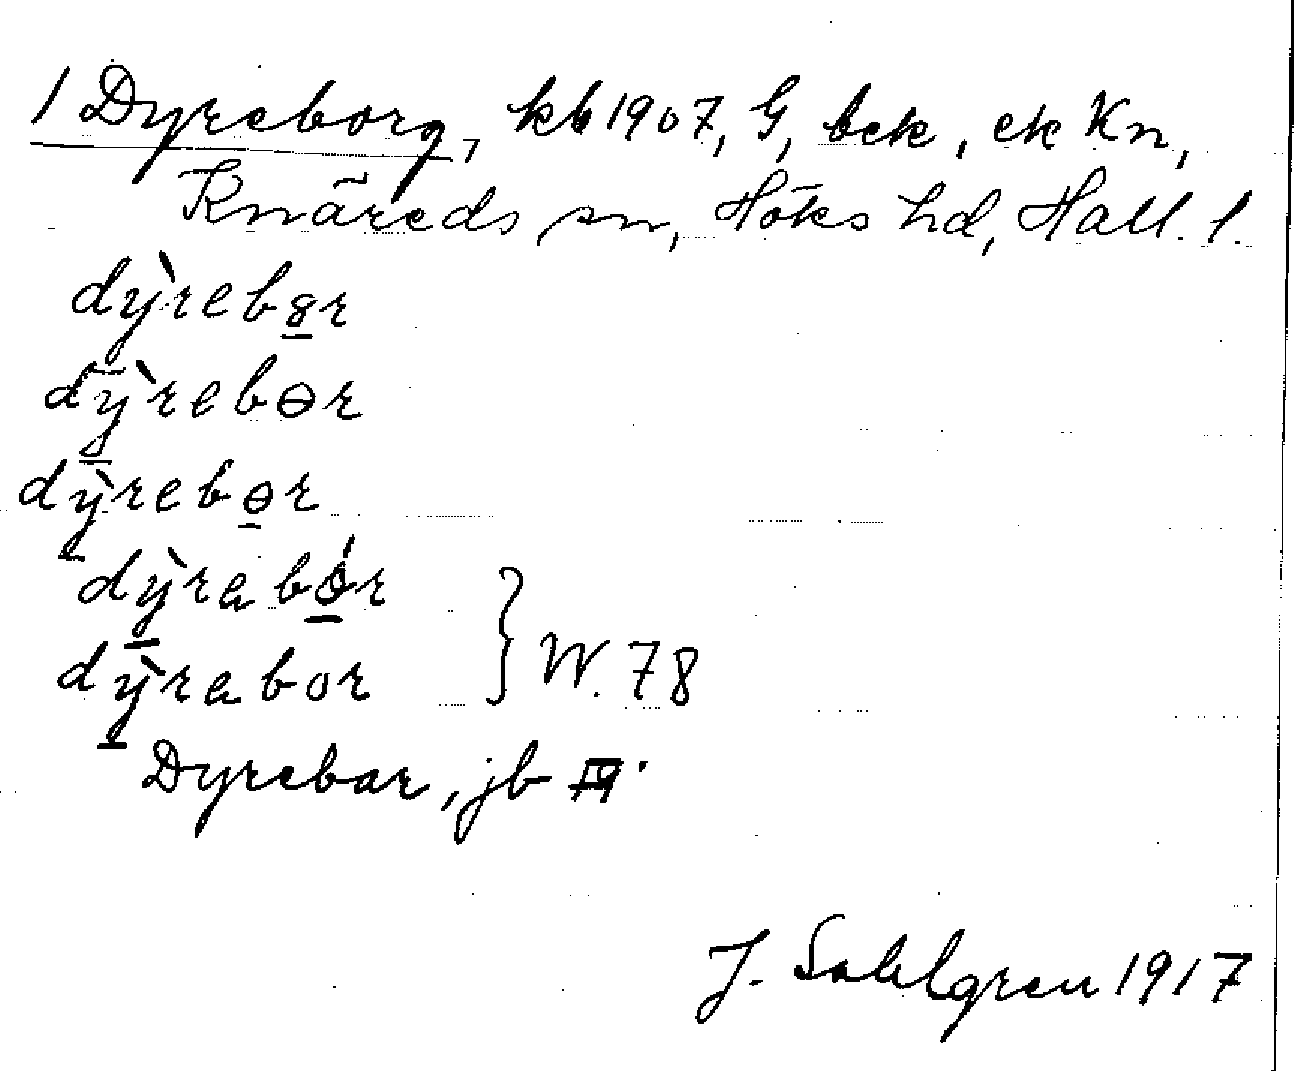 1 Dyreborg, kb 1907, G, bek, ek Kn,
Knäreds sn, Höks hd, Hall. l.
dỳreb8r
dỳrebɵr
dỳrebɵr
dỳrabɵ́r
dỳrabor } W. 78
Dyrebar, jb
J. Sahlgren 1917